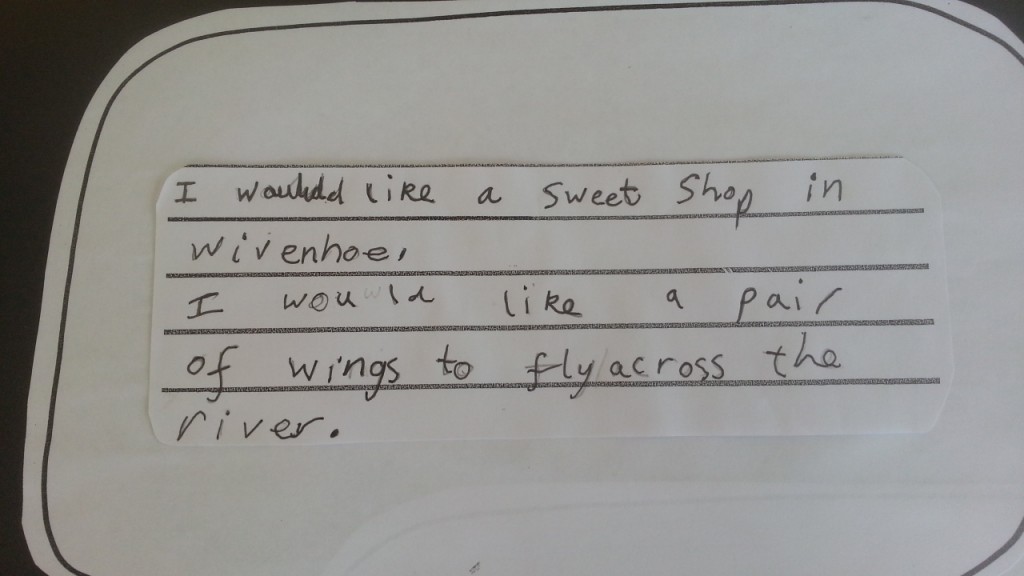 I would like a sweet shop in
wivenhoe,
I would like a pair
of wings to fly/across the
river.